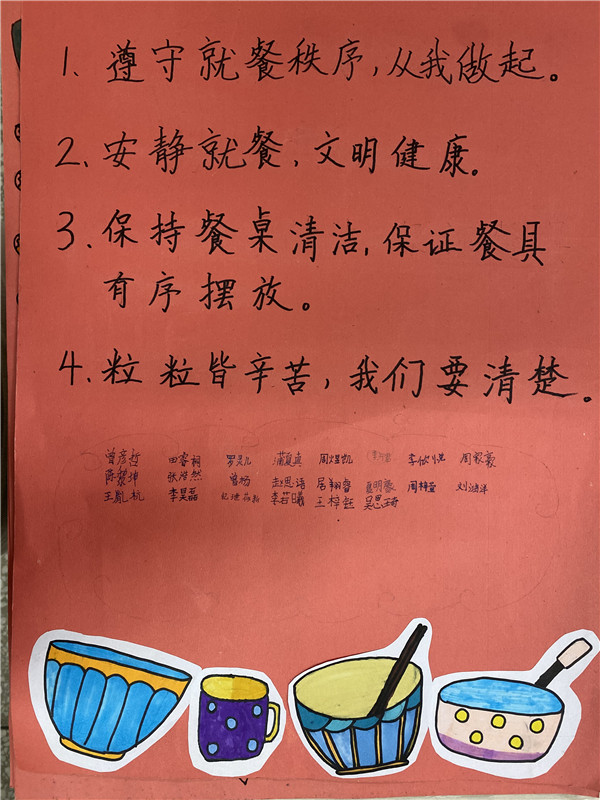 1、遵守就餐秩序,从我做起。
2、安静就餐、文明健康。
3、保持餐桌清洁,保证餐具
有序摆放。
4、粒粒皆辛苦,我们要清楚。
曾彦哲 田睿桐 周煜凯 李欣悦 周家豪
张浩然 曾杨 赵思语 居翔睿 周梓萱 刘涵洋
王胤杭 李昊磊 李若曦 王梓钰 吴思琦